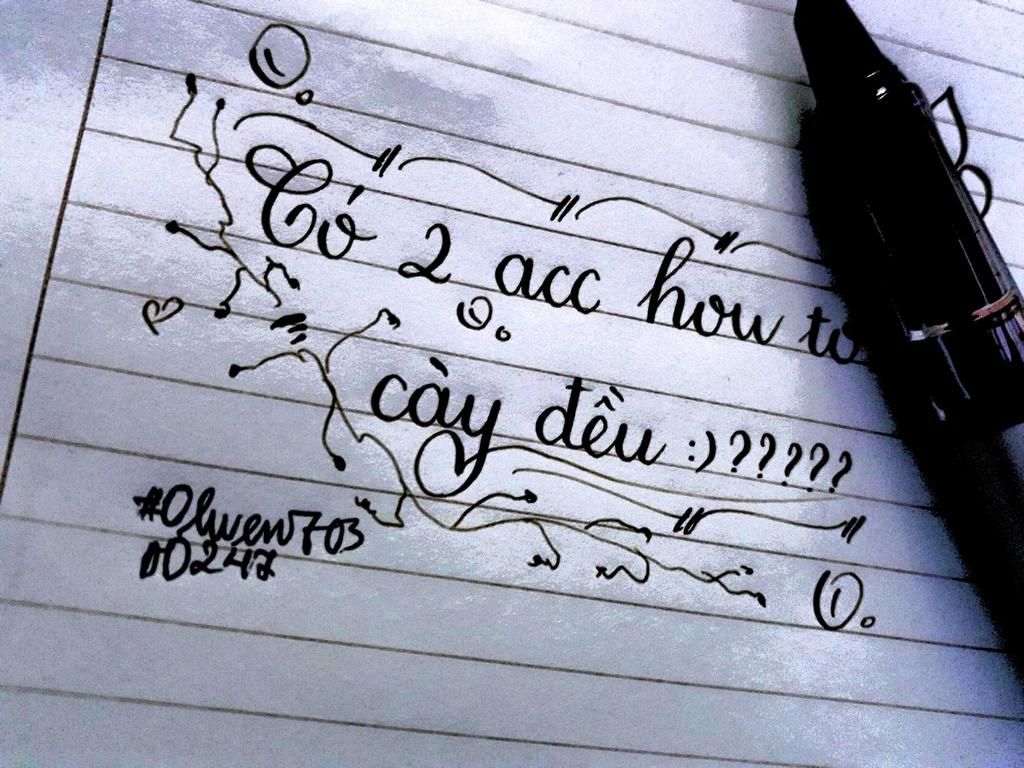 Có 2 acc how to
cày đều :)?????
#Olwen703
00247